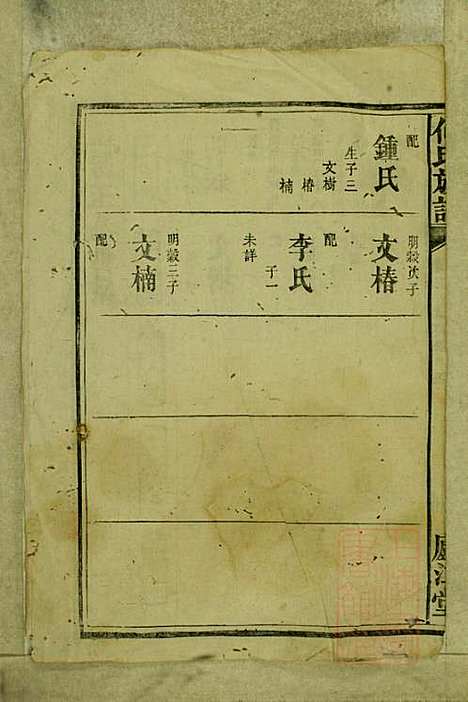 何氏族譜
廬江堂
配
鍾氏
生子三
文樹
椿
楠
明穀次子
文椿
配
李氏
子一
未詳
明穀三子
文楠
配